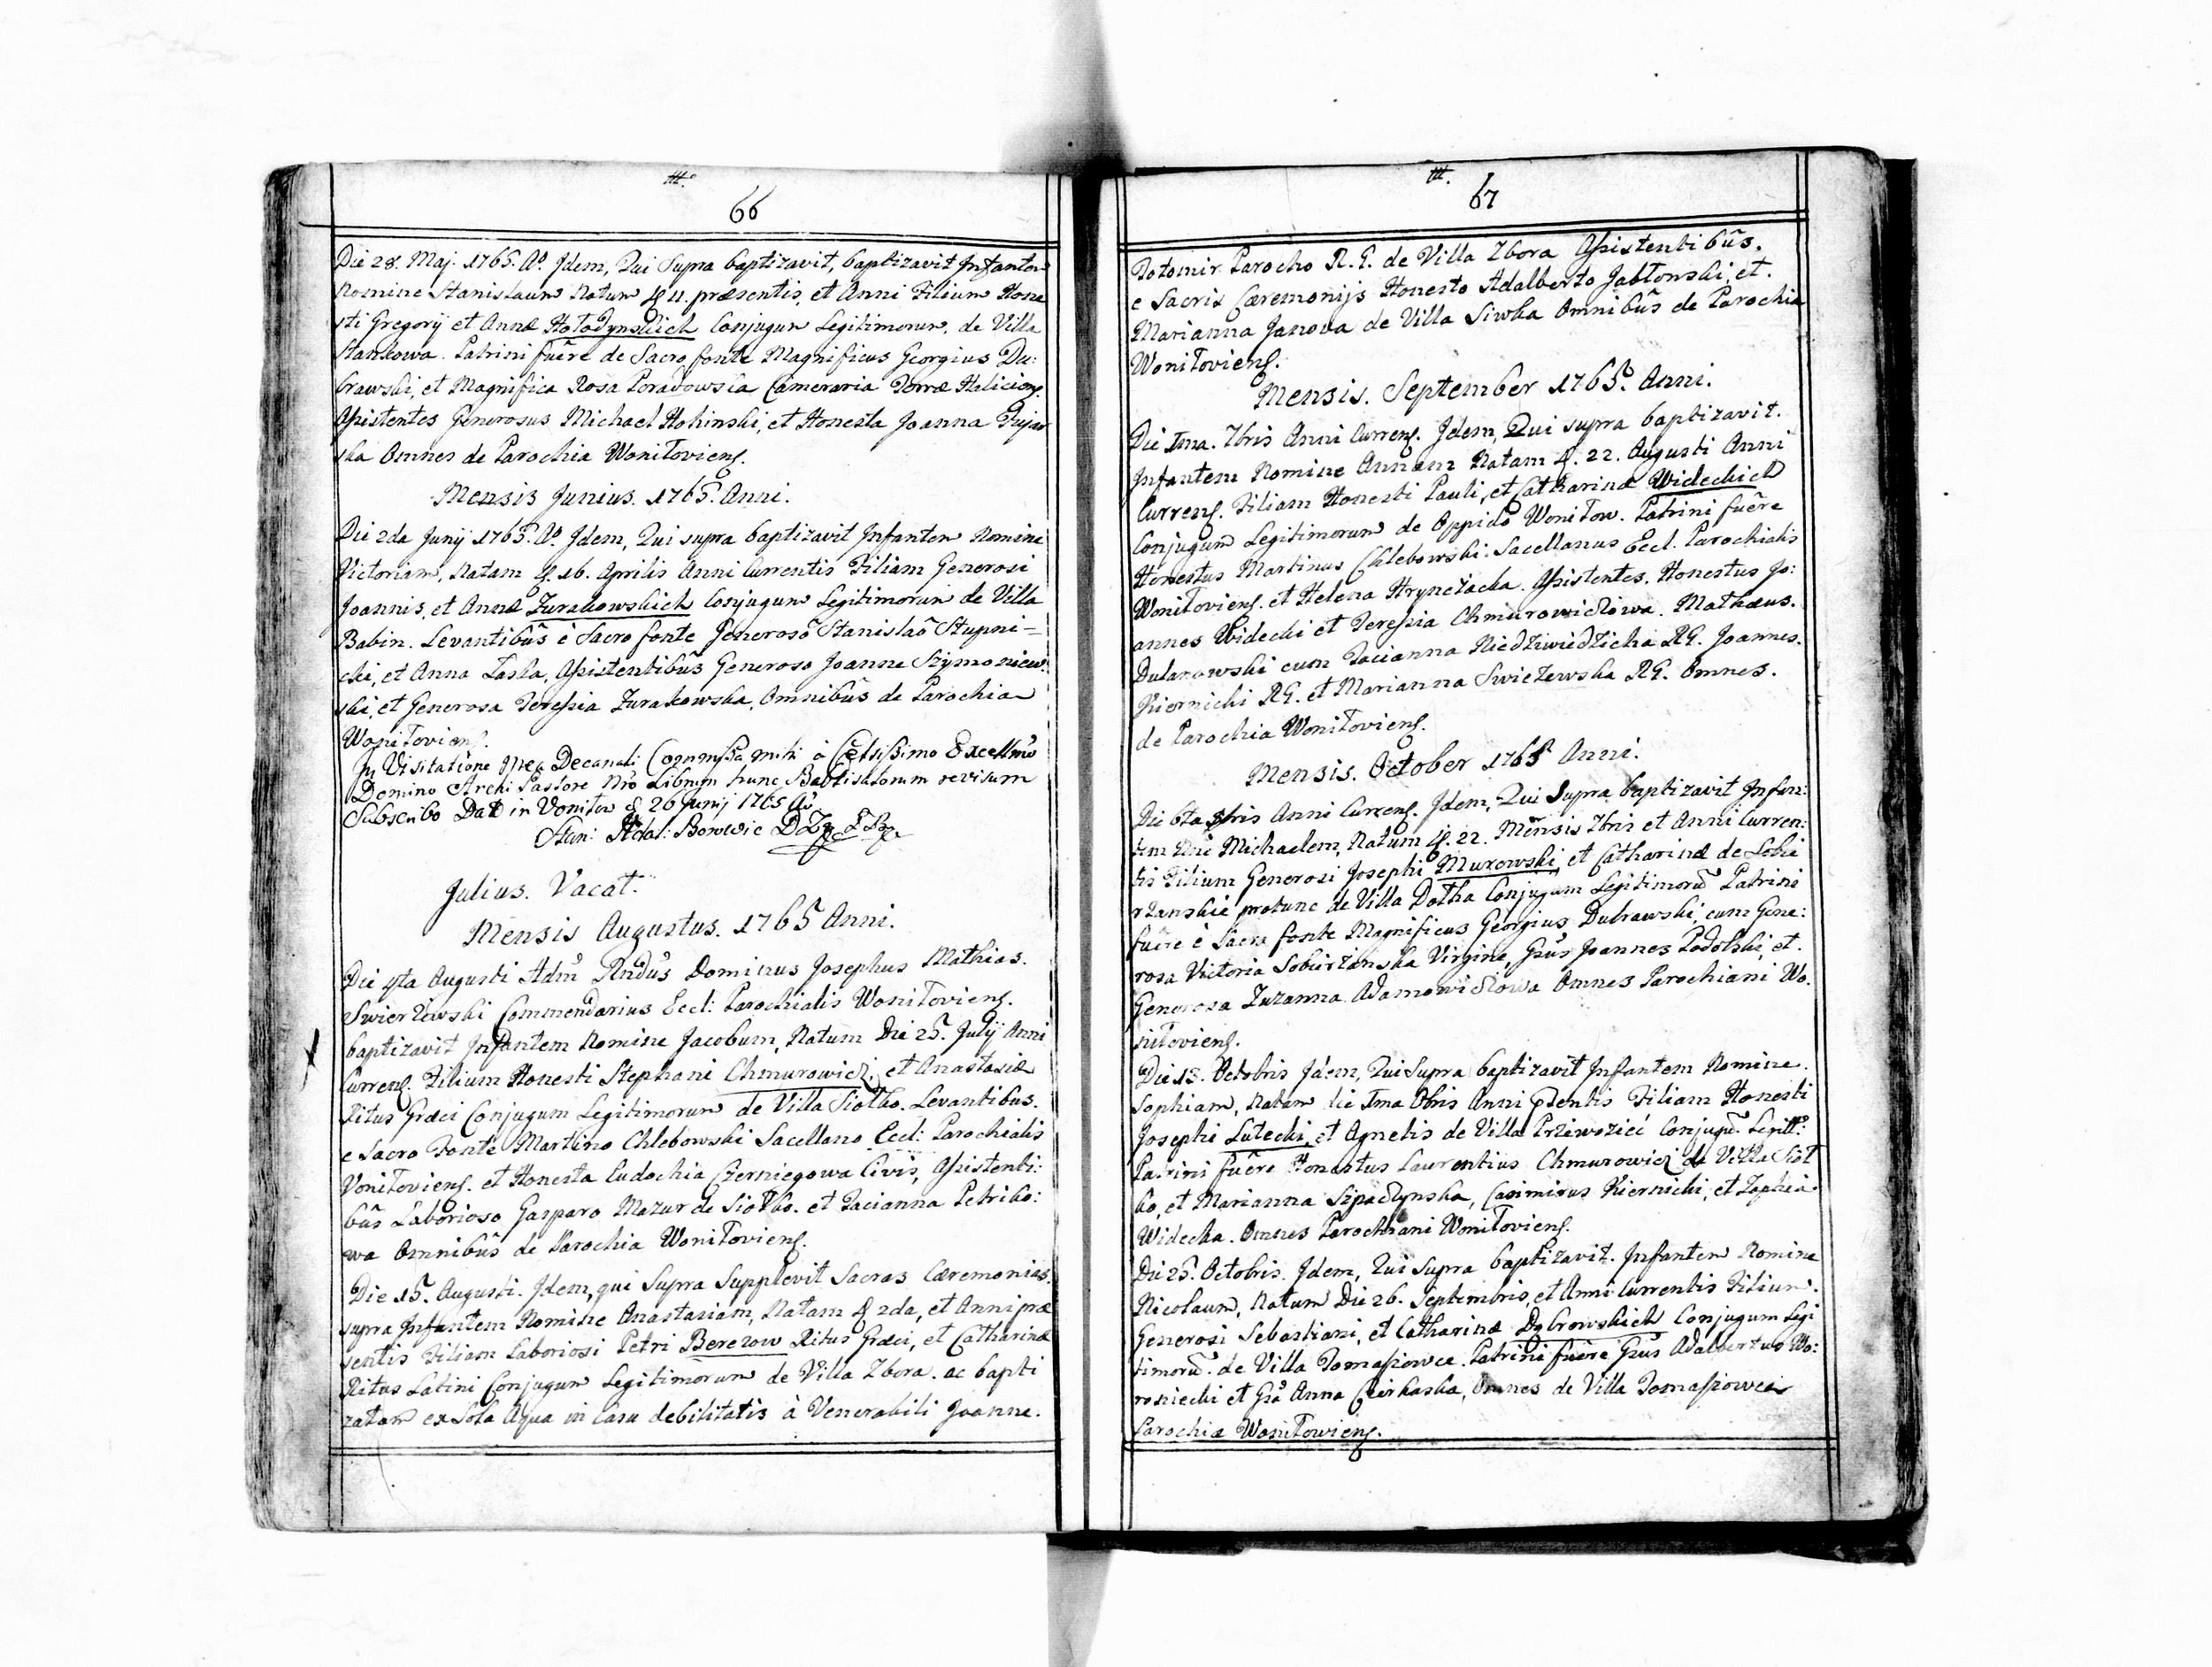 66
Die 28. Maj. 1765. Aº. Jdem, Qui Supra baptizavit, baptizavit Jnfantem
Nomine Stanislaum Natum 11. præsentis, et Anni Filium Hone
sti Gregorij et Annæ Hołodynskich Conjugum Legitimorum, de Villa
Stankowa. Patrini fuêre de Sacro fonte Magnificus Georgius Du:
brawski, et Magnifica Rosa Poradowska Cameraria Terræ Haliciens.
Assistentes Generosus Michael Hohinski, et Honesta Joanna
ska Omnes de Parochia Woniłoviens.
Mensis Junius. 1765. Anni.
Die 2da Junij 1765. Aº. Jdem, Qui supra baptizavit Jnfantem Nomine
Victoriam, Natam 16. Aprilis Anni Currentis Filiam Generosi
Joannis, et Annæ Zurakowskich Conjugum Legitimorum de Villa
Babin. Levantibûs è Sacro fonte Generosô Stanislaô Stupni=
cki, et Anna Łaska, Assistentibûs Generoso Joanne Szymoniew:
ski, et Generosa Teressia Zurakowska, Omnibûs de Parochia
Woniłoviens.
Jn Visitatione Decanali Commissa mihi à Celsissimo Excellmo
Domino Archi Pastore Nro Librum hunc Baptisatorum revisum
Subscribo Dat in Voniłow 26 Junij 1765 Aº
Stan: Adal: Borowic
Julius. Vacat.
Mensis Augustus. 1765 Anni.
Die 4ta Augusti Adm Rndus Dominus Josephus Mathias.
Swierzewski Commendarius Eccl: Parochialis Woniłoviens.
baptizavit Jnfantem Nomine Jacobum, Natum Die 25. Julij Anni
Currens. Filium Honesti Stephani Chmurowicz, et Anastasiæ
Ritus Græci Conjugum Legitimorum de Villa Siołko. Levantibus.
e Sacro Fonte Martino Chlebowski Sacellano Eccl: Parochialis
Voniłoviens. et Honesta Eudochia Czerniegowa Civis, Assistenti:
bûs Laborioso Gasparo Mazur de Siołko. et Tacianna Petriko:
wa Omnibûs de Parochia Woniłoviens.
Die 15. Augusti. Jdem, qui Supra Supplevit Sacras Cæremonias.
supra Jnfantem Nomine Anastasiam, Natam 2da, et Anni præ
sentis Filiam Laboriosi Petri Berezow Ritus Græci, et Catharinæ
Ritus Latini Conjugum Legitimorum de Villa Zbora. ac bapti
zatam ex Sola Aqua in Casu debilitatis à Venerabili Joanne.
67
Parocho R. G. de Villa Zbora Assistentibûs.
e Sacris Cæremonijs Honesto Adalberto Jabłonski, et.
Marianna Janowa de Villa Siwka Omnibûs de Parochia
Woniłoviens.
Mensis. September 1765. Anni.
Die Ima. 7bris Anni Currens. Jdem, Qui supra baptizavit.
Jnfantem Nomine Annam Natam 22. Augusti Anni
Currens. Filiam Honesti Pauli, et Catharinæ Wideckich
Conjugum Legitimorum de Oppido Woniłow. Patrini fuêre
Honestus Martinus Chlebowski Sacellanus Eccl. Parochialis
Woniłoviens. et Helena Hrynczacka. Assistentes. Honestus Jo:
annes Widecki et Teressia Chmurowiczowa. Mathæus.
Dulanowski cum Tacianna Niedzwiedzicha RG. Joannes.
Kiernicki RG. et Marianna Swiezewska RG. Omnes.
de Parochia Woniłoviens.
Mensis. October 1765 Anni.
Die 6ta 8bris Anni Currens. Jdem, Qui Supra baptizavit Jnfan:
tem Michaelem, Natum 22. Mensis 7bris et Anni Curren:
tis Filium Generosi Josephi Murowski, et Catharinæ de Sobie
rzanskie protunc de Villa Dołha Conjugum Legitimorũ Patrini
fuêre è Sacro fonte Magnificus Georgius Dubrawski, cum Gene:
rosa Victoria Sobierzanska Virgine, Gsus Joannes Podolski, et.
Generosa Zuzanna Adamowiczowa Omnes Parochiani Wo.
niłoviens.
Die 13. Octobris Jdem, Qui Supra baptizavit Jnfantem Nomine.
Sophiam, Natam die Ima 8bris Anni pdentis Filiam Honesti
Josephi Lutecki, et Agnetis de Villa Przewoziec Conjugũ Legitt:
Patrini fuêre Honestus Laurentius Chmurowicz de Villa Sioł
ko, et Marianna Szpaczynska, Casimirus Kiernicki, et Zophia
Widecka. Omnes Parochiani Woniłoviens.
Die 25. Octobris. Jdem, Qui Supra baptizavit. Jnfantem Nomine
Nicolaum, Natum Die 26. Septembris, et Anni Currentis Filium.
Generosi Sebastiani, et Catharinæ Dąbrowskich Conjugum Legi
timorũ. de Villa Tomaszowce. Patrini fuêre Gsus Adalbertus Wo:
roniecki et Gsa Anna Czirkaska, Omnes de Villa Tomaszowce
Parochiæ Woniłowiens.